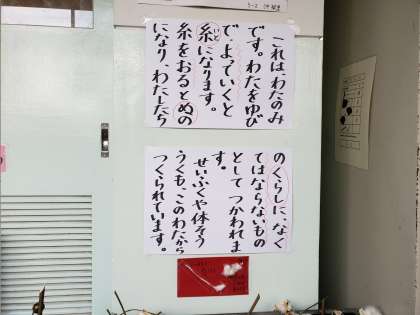 これは、わたのみ
です。わたをゆび
で、よっていくと
糸になります。
いと
糸をおるとぬの
になり、わたしたち
のくらしに、なく
てはならないもの
として つかわれま
す。
せいふくや体そう
ふくも、このわたから
つくられています。